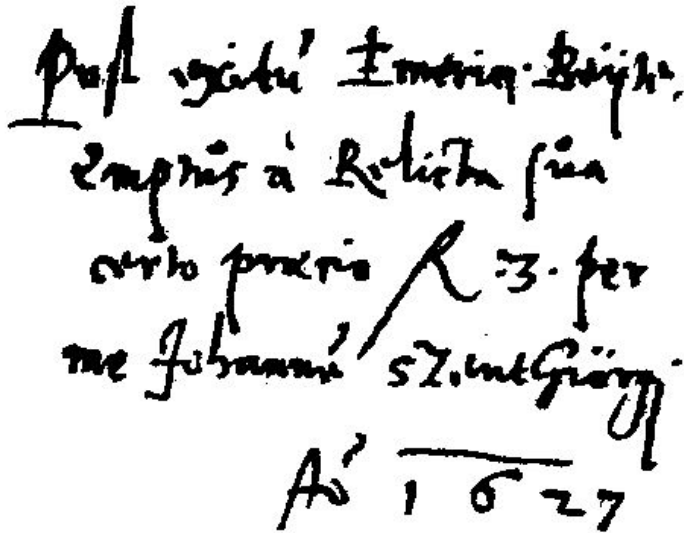 Post exitũ Emerici Beÿthe,
Emptus à Relicta sua
certo præcio R 3. per
me Johannẽ SZ.entGiörgÿ
Aõ 1627